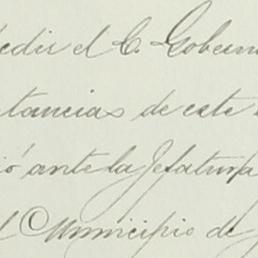 edir el C. Gobern
tancias de este
ió ante la Jefatura
l Municipio de